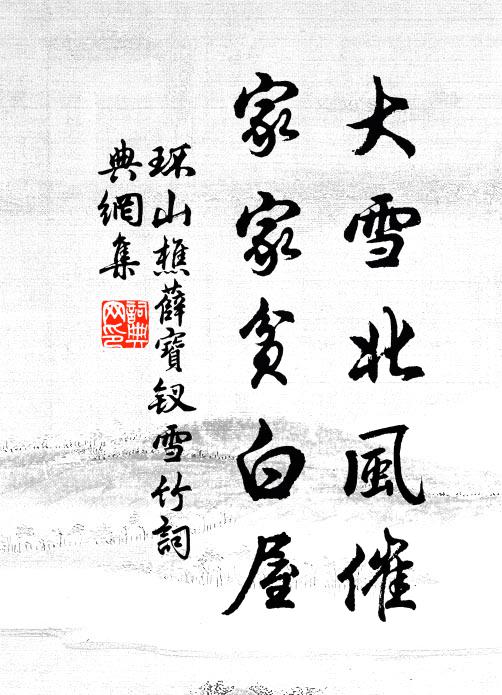 大雪北風催
家家貧白屋
琛山樵薛寶釵雪竹詞
典網集
詞典
网印